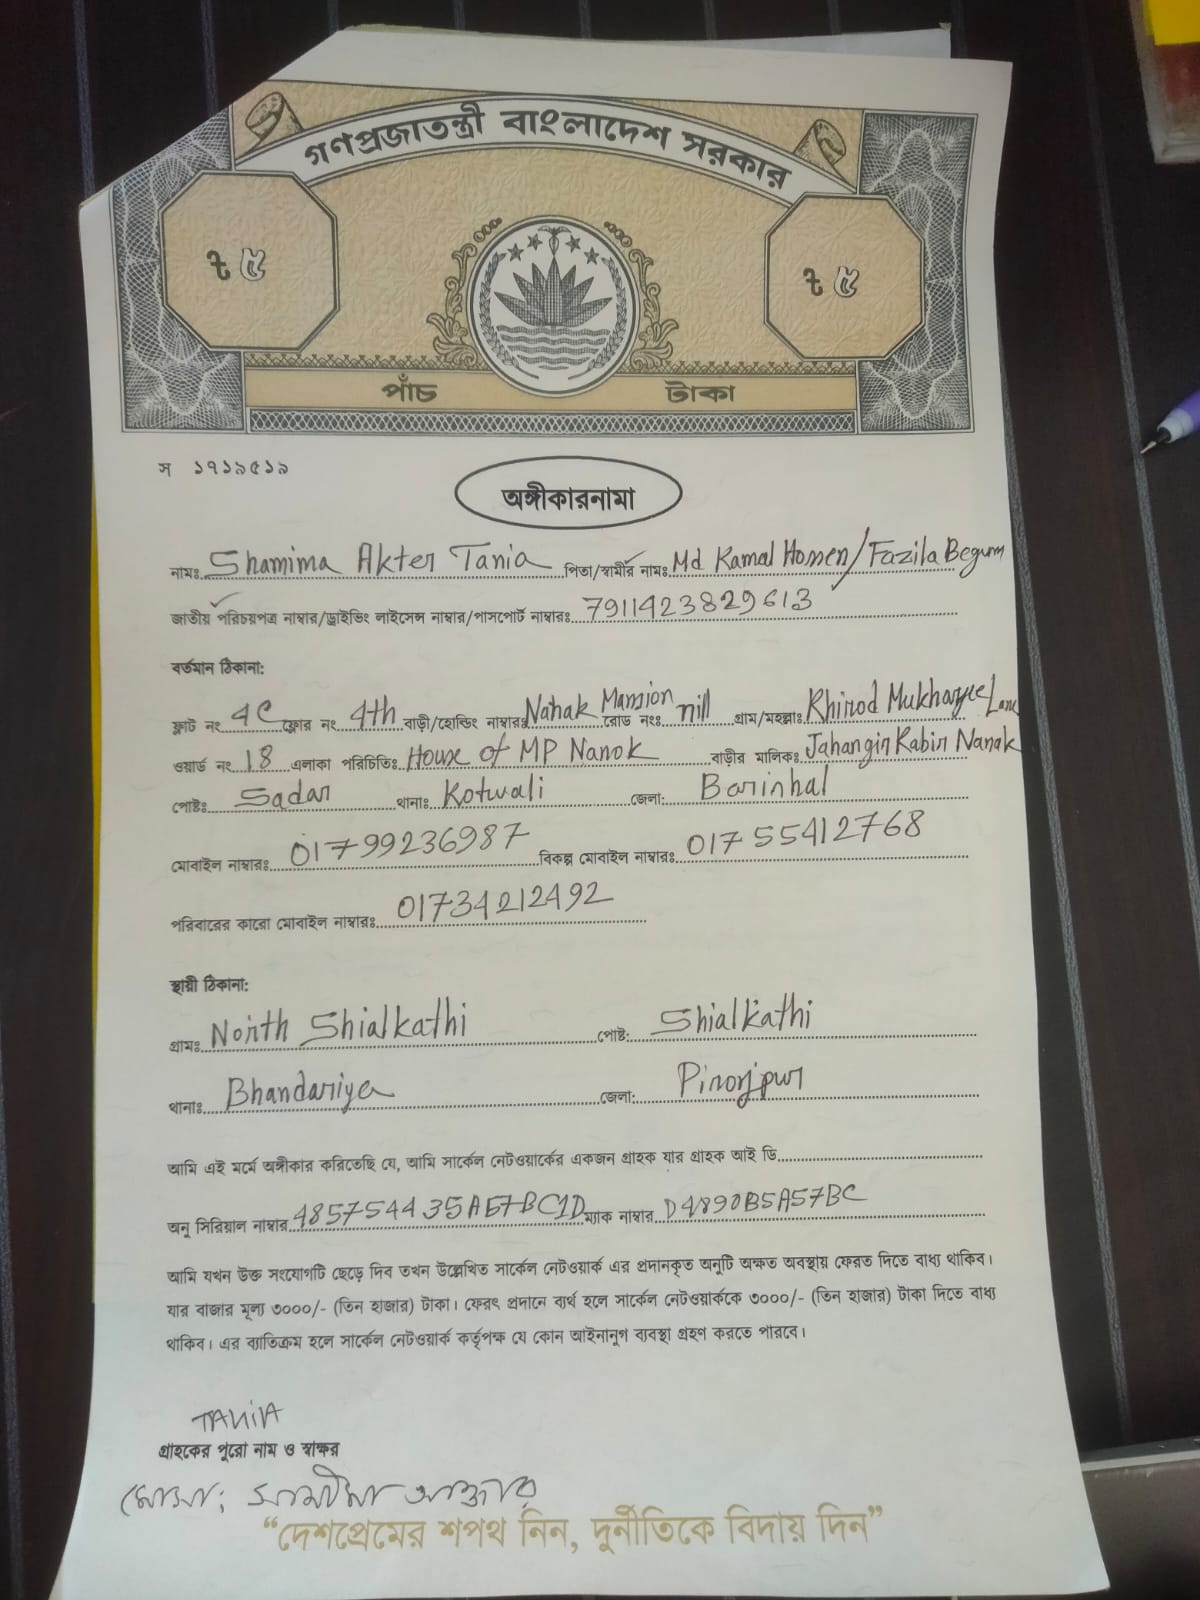 গণপ্রজাতন্ত্রী বাংলাদেশ সরকার
৳ ৫ ৳ ৫
পাঁচ টাকা
স ১৭১৯৫১৯
অঙ্গীকারনামা
নামঃ Shamima Akter Tania পিতা/স্বামীর নামঃ Md Kamal Hossen/Fazila Begum
জাতীয় পরিচয়পত্র নাম্বার/ড্রাইভিং লাইসেন্স নাম্বার/পাসপোর্ট নাম্বারঃ 7911423829613
বর্তমান ঠিকানা:
ফ্লাট নং 4C ফ্লোর নং 4th বাড়ী/হোল্ডিং নাম্বারঃ Nanak Mansion রোড নংঃ nill গ্রাম/মহল্লাঃ Khirod Mukharjee Lane
ওয়ার্ড নং 18 এলাকা পরিচিতিঃ House of MP Nanok বাড়ীর মালিকঃ Jahangir Kabir Nanak
পোষ্টঃ Sadar থানাঃ Kotwali জেলা: Barishal
মোবাইল নাম্বারঃ 01799236987 বিকল্প মোবাইল নাম্বারঃ 01755412768
পরিবারের কারো মোবাইল নাম্বারঃ 01734212492
স্থায়ী ঠিকানা:
গ্রামঃ North Shialkathi পোষ্ট: Shialkathi
থানাঃ Bhandariya জেলা: Pirojpur
আমি এই মর্মে অঙ্গীকার করিতেছি যে, আমি সার্কেল নেটওয়ার্কের একজন গ্রাহক যার গ্রাহক আই ডি
অনু সিরিয়াল নাম্বার 485754435A57BC1D ম্যাক নাম্বার D4890B5A57BC
আমি যখন উক্ত সংযোগটি ছেড়ে দিব তখন উল্লেখিত সার্কেল নেটওয়ার্ক এর প্রদানকৃত অনুটি অক্ষত অবস্থায় ফেরত দিতে বাধ্য থাকিব।
যার বাজার মূল্য ৩০০০/- (তিন হাজার) টাকা। ফেরৎ প্রদানে ব্যর্থ হলে সার্কেল নেটওয়ার্ককে ৩০০০/- (তিন হাজার) টাকা দিতে বাধ্য
থাকিব। এর ব্যাতিক্রম হলে সার্কেল নেটওয়ার্ক কর্তৃপক্ষ যে কোন আইনানুগ ব্যবস্থা গ্রহণ করতে পারবে।
TANIA
গ্রাহকের পুরো নাম ও স্বাক্ষর
মোসা: শামীমা আক্তার
“দেশপ্রেমের শপথ নিন, দুর্নীতিকে বিদায় দিন”